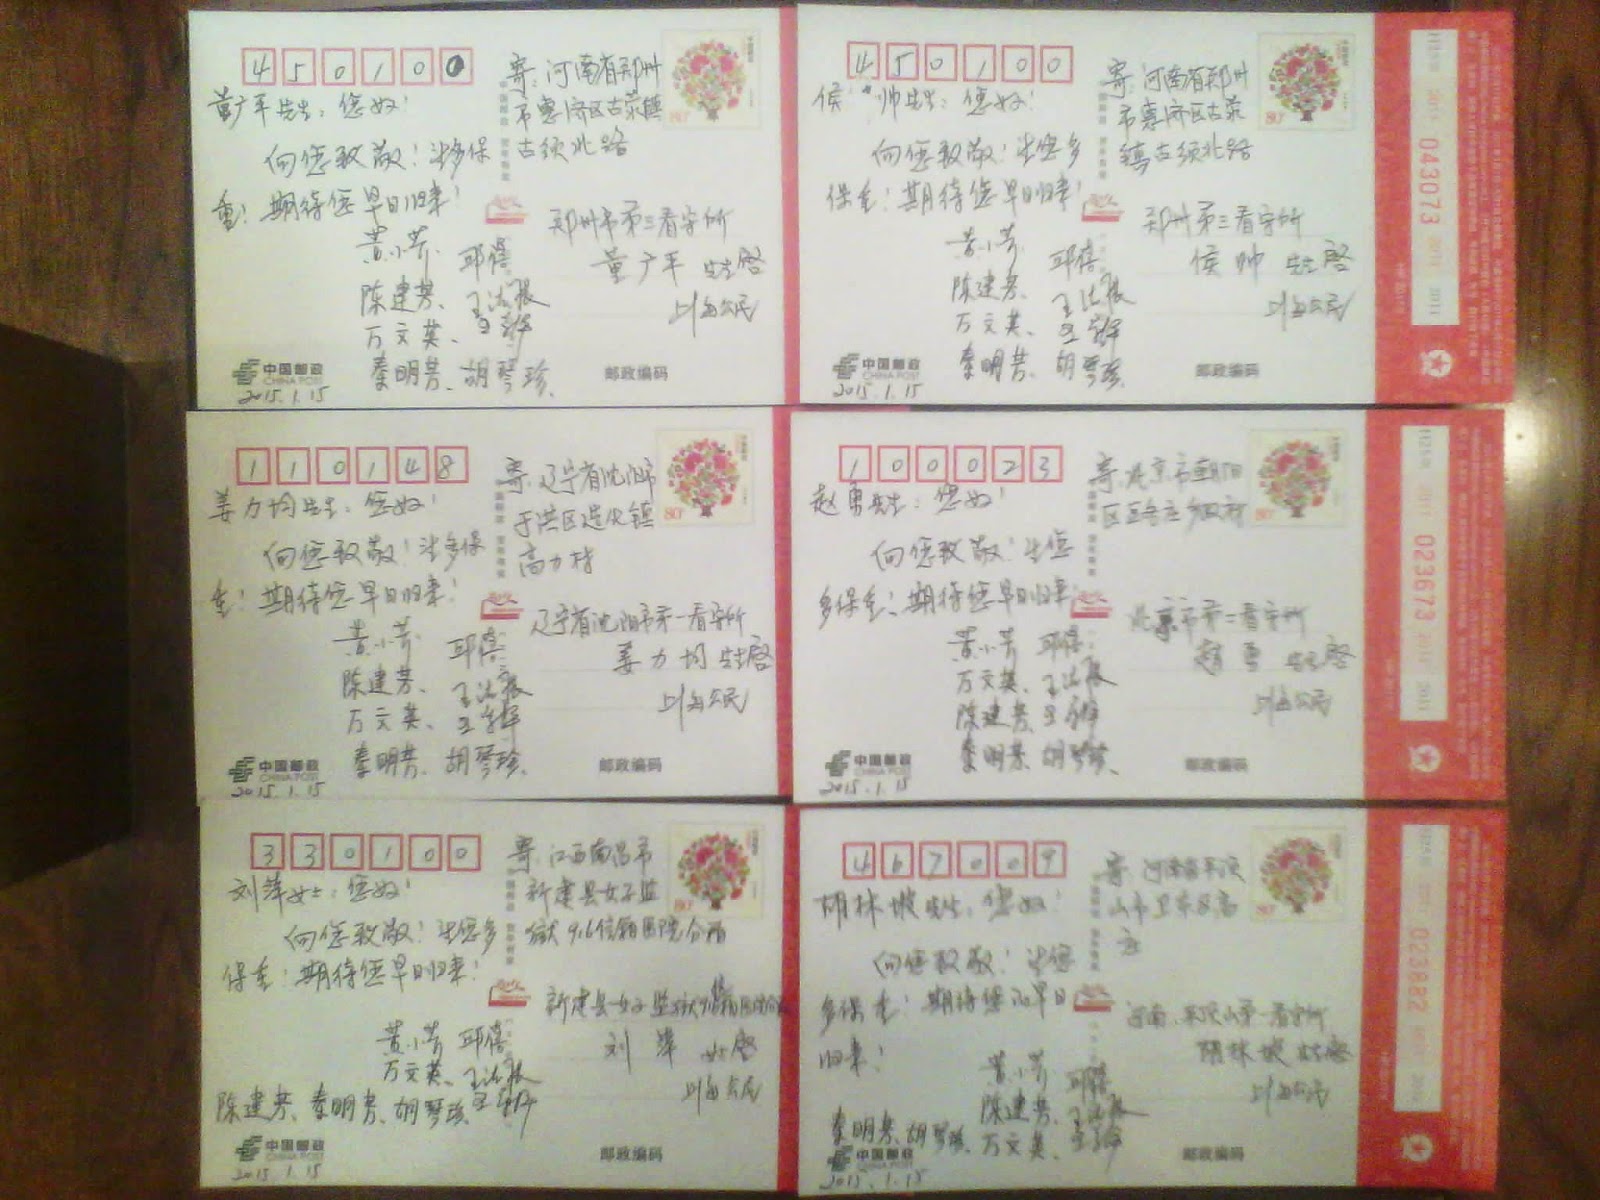 450100
董广平先生：您好！
向您致敬！请多保
重！期待您早日归来！
黄小芳 邱蓓
陈建芳、王法振
万文英、
秦明芳、胡琴珍
中国邮政
CHINA POST
2015.1.15
寄：河南省郑州
市惠济区古荥镇
古须北路
80
郑州市第三看守所
董广平 先生启
上海公民
邮政编码
450100
侯帅先生：您好！
向您致敬！请您多
保重！期待您早日归来！
黄小芳 邱蓓
陈建芳、王法振
万文英、
秦明芳、胡琴珍
中国邮政
CHINA POST
2015.1.15
寄：河南省郑州
市惠济区古荥
镇古须北路
80
郑州第三看守所
侯帅 先生启
上海公民
邮政编码
043073
110148
姜力均先生：您好！
向您致敬！请多保
重！期待您早日归来！
黄小芳 邱蓓
陈建芳、王法振
万文英、
秦明芳、胡琴珍
中国邮政
CHINA POST
2015.1.15
寄：辽宁省沈阳市
于洪区造化镇
高力村
80
辽宁省沈阳市第一看守所
姜力均 先生启
上海公民
邮政编码
100023
赵勇先生：您好！
向您致敬！请您
多保重！期待您早日归来！
黄小芳 邱蓓
万文英、王法振
陈建芳、
秦明芳、胡琴珍
中国邮政
CHINA POST
2015.1.15
寄：北京市朝阳
区豆各庄乡政府
80
北京市第二看守所
赵勇 先生启
上海公民
邮政编码
023673
330100
刘萍女士：您好！
向您致敬！请您多
保重！期待您早日归来！
黄小芳 邱蓓
万文英、王法振
陈建芳、秦明芳、胡琴珍
中国邮政
CHINA POST
2015.1.15
寄：江西南昌市
新建县女子监
狱916信箱医院分箱
80
新建县女子监狱
刘萍 女士启
上海公民
邮政编码
467009
胡林坡先生：您好！
向您致敬！请您
多保重！期待您早日
归来！
黄小芳 邱蓓
陈建芳、王法振
秦明芳、胡琴珍、万文英、
中国邮政
CHINA POST
2015.1.15
寄：河南省平顶
山市卫东区高
80
河南平顶山第一看守所
胡林坡 先生启
上海公民
邮政编码
023882